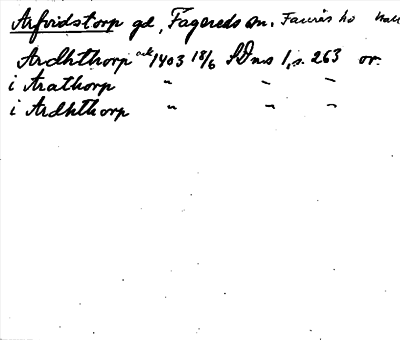 Arfvidstorp gd, Fagereds sn. Faurås hd Hall
Ardhthorp ack 1403 18/6 SDns 1, s. 263 or.
i Arathorp " " "
i Ardhthorp " " "